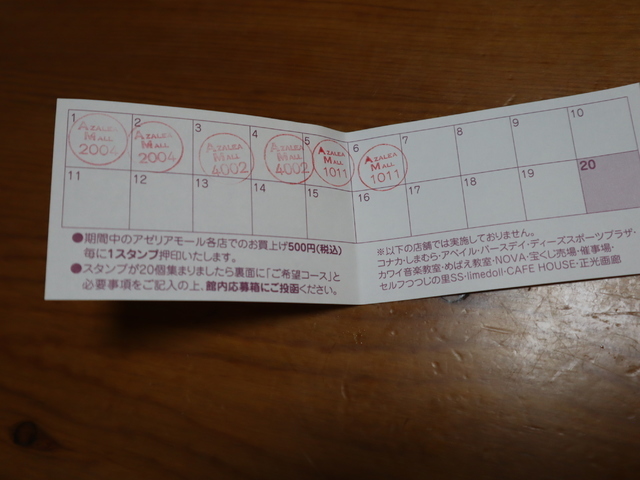 1 2 3 4 5 6 7 8 9 10
AZALEA MALL 2004
AZALEA MALL 2004
AZALEA MALL 4002
AZALEA MALL 4002
AZALEA MALL 1011
AZALEA MALL 1011
11 12 13 14 15 16 17 18 19 20
●期間中のアゼリアモール各店でのお買上げ500円(税込)
毎に1スタンプ押印いたします。
●スタンプが20個集まりましたら裏面に「ご希望コース」と
必要事項をご記入の上、館内応募箱にご投函ください。
※以下の店舗では実施しておりません。
コナカ・しまむら・アベイル・バースデイ・ディーズスポーツプラザ・
カワイ音楽教室・めばえ教室・NOVA・宝くじ売場・催事場・
セルフつつじの里SS・limedoll・CAFE HOUSE・正光画廊